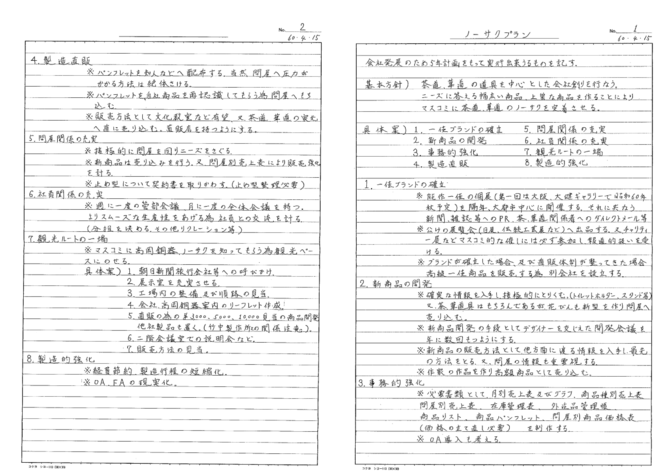 No. 1
60.4.15
ノーサクプラン
会社発展のため5年計画をもって実行出来うるものを記す。
基本方針) 茶道、華道の道具を中心とした会社創りを行なう。
ニーズに答える幅広い商品、上質な商品を作ることにより
マスコミに茶道、華道のノーサクを定着させる。
具体案) 1. 一佳ブランドの確立 5. 問屋関係の充実
2. 新商品の開発 6. 社員関係の充実
3. 事務的強化 7. 観光ルートの一場
4. 製造直販 8. 製造的強化
1. 一佳ブランドの確立
※ 能作一佳の個展(第一回は大阪、大媒ギャラリーで昭和60年
秋予定)を隔年、大都市中心に開催する。それに共なう
新聞、雑誌等へのPR、茶、華道関係者へのダイレクトメール等
※ 公けの展覧会(日展、伝統工芸展など)へ出品する。又チャリティ
ー展などマスコミ的な催しには必ず参加し報道的扱いを受
ける。
※ ブランドが確立した場合、及び直販体制が整ってきた場合
高級一佳商品を販売する為、別会社を設立する。
2. 新商品の開発
※ 確実な情報を入手し、積極的にとりくむ。(トイレットホルダー、スタンド等)
又、茶華道具はもちろんであるが花びんも新型を作り問屋へ
売り込む。
※ 新商品開発の手段としてデザイナーを交じえた開発会議を
年に数回もつようにする。
※ 新商品の販売方法として他方面に渡る情報を入手し最老
の方法をとる。又、問屋の情報も重要視する。
※ 作家の作品を作り高級商品として売り込む。
3. 事務的強化
※ 必要書類として、月別売上表及びグラフ、商品種別売上表
問屋別売上表、在庫管理表、外注品管理帳
商品リスト、商品パンフレット、問屋別商品価格表
(価格の立て直し必要) を制作する。
※ OA導入も考える。
No. 2
60.4.15
4. 製造直販
※ パンフレットを知人などへ配布する。当然、問屋へ圧力が
かかる方法は絶体さける。
※ パンフレットを自社商品を再認識してもらう為問屋へもち
込む。
※ 販売方法として文化教室など有望、又、茶道、華道の家元
へ直に売り込む。直販店を持つようにする。
5. 問屋関係の充実
※ 積極的に問屋を回りニーズをさぐる。
※ 新商品は売り込みを行う。又、問屋別売上表により販売強化
を計る。
※ 止め型について契約書を取りかわす。(止め型整理必要)
6. 社員関係の充実
※ 週に一度の管部会議、月に一度の全体会議を持つ。
よりスムーズな生産性をあげる為社員との交流を計る。
(分担を決める。その他リクレーション等)
7. 観光ルートの一場
※ マスコミに高岡銅器、ノーサクを知ってもらう為観光ベー
スにのせる。
具体案) 1. 朝日新聞旅行会社等への呼びかけ。
2. 展示室を充実させる。
3. 工場内の整備及び順路の見当。
4. 会社、高岡商品のリーフレット作成。
5. 直販の為の¥3000、5000、10000見当の商品開発
他社製品も置く。(竹中製作所の関係注意)。
6. 二階会議室での説明会など。
7. 販売方法の見当。
8. 製造的強化
※ 経費節約、製造行程の短縮化。
※ OA、FAの現実化。